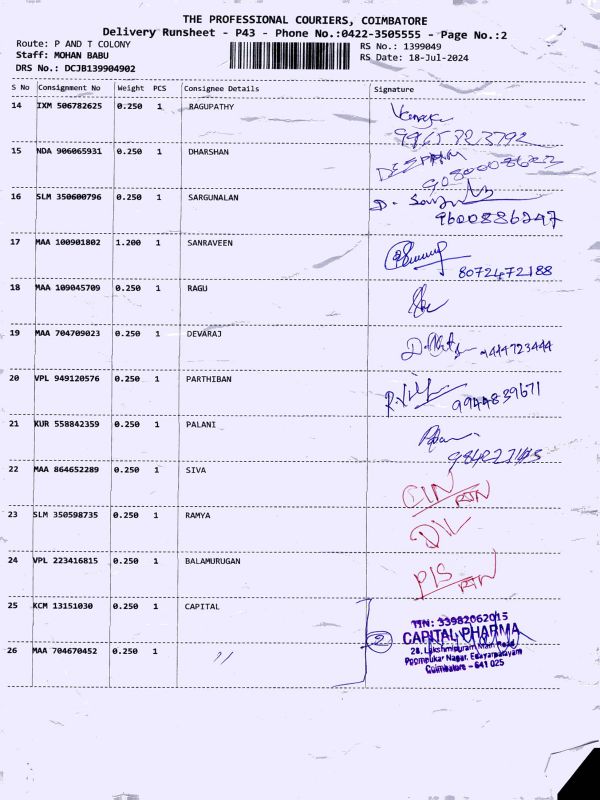 THE PROFESSIONAL COURIERS, COIMBATORE
Delivery Runsheet - P43 - Phone No.:0422-3505555 - Page No.:2
Route: P AND T COLONY
RS No.: 1399049
Staff: MOHAN BABU
RS Date: 18-Jul-2024
DRS No.: DCJB139904902
S No Consignment No Weight PCS Consignee Details Signature
14 IXM 506782625 0.250 1 RAGUPATHY
9965723792
15 NDA 906065931 0.250 1 DHARSHAN
16 SLM 350600796 0.250 1 SARGUNALAN
9600886247
17 MAA 100901802 1.200 1 SANRAVEEN
8072472188
18 MAA 109045709 0.250 1 RAGU
19 MAA 704709023 0.250 1 DEVARAJ
20 VPL 949120576 0.250 1 PARTHIBAN
9944839671
21 KUR 558842359 0.250 1 PALANI
22 MAA 864652289 0.250 1 SIVA
RTN
23 SLM 350598735 0.250 1 RAMYA
D/L
24 VPL 223416815 0.250 1 BALAMURUGAN
P/S
RTN
25 KCM 13151030 0.250 1 CAPITAL
TIN: 33982062015
2 CAPITAL PHARMA
28, Lakshmipuram Main Road
26 MAA 704670452 0.250 1 11
Nagar, Edayarpalayam
Coimbatore - 641 025